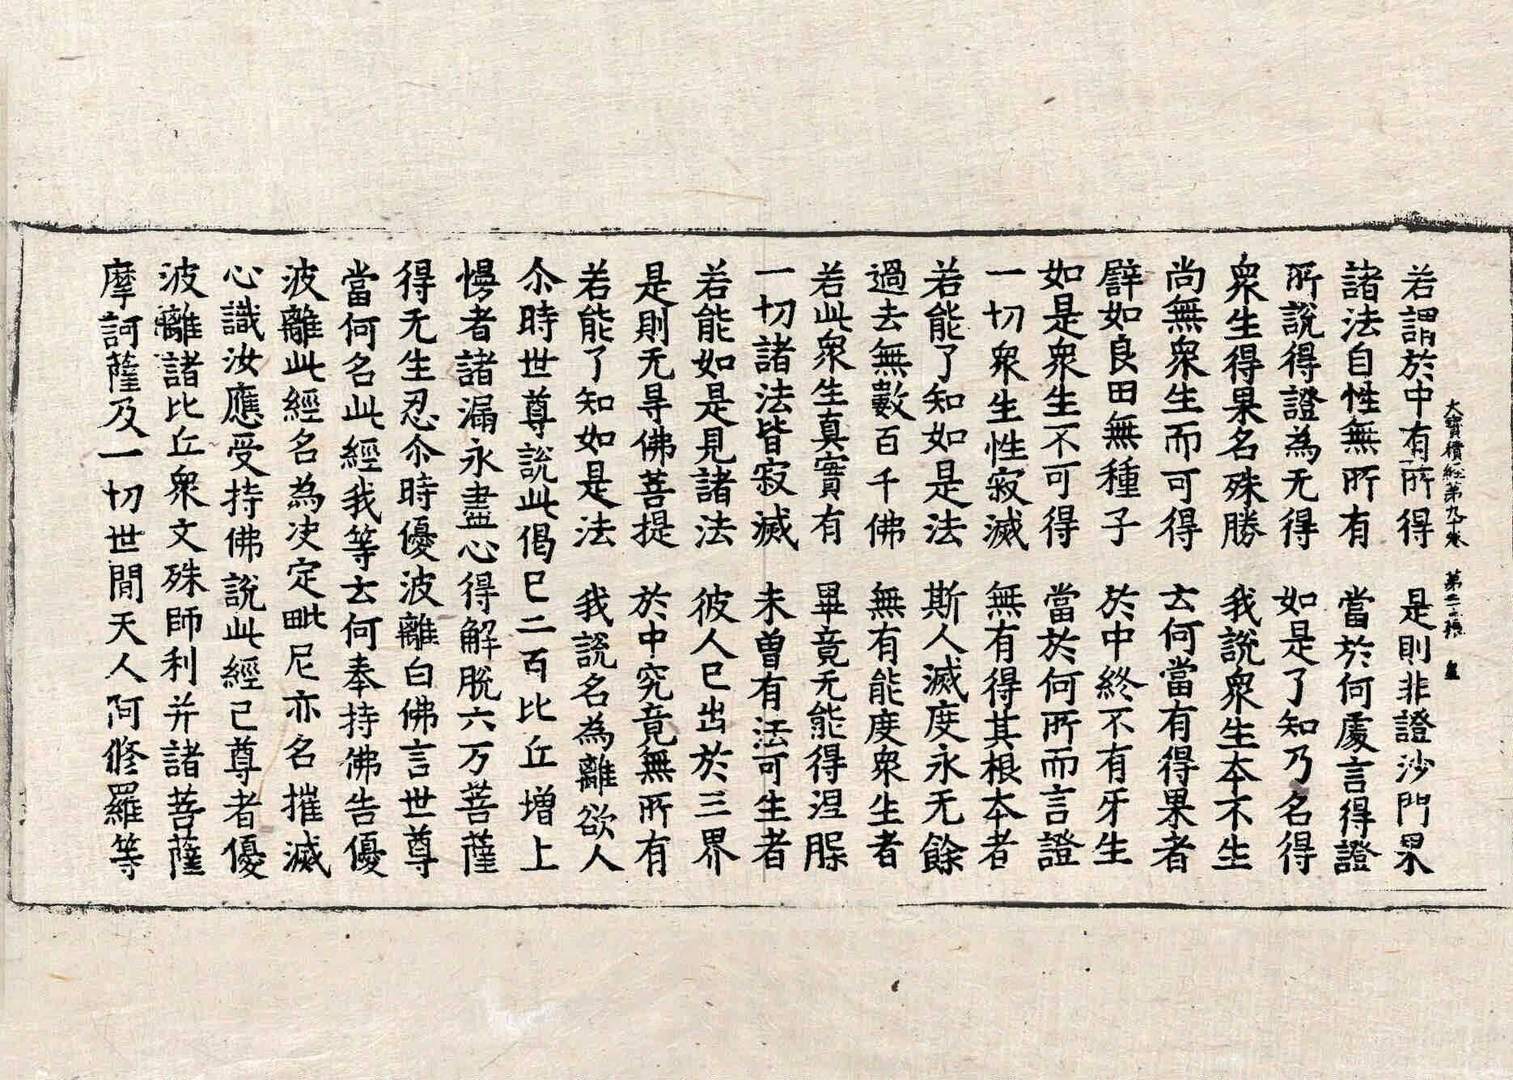 大寶積經第九十卷　第二十張　皇
若謂於中有所得　是則非證沙門果
諸法自性無所有　當於何處言得證
所說得證為无得　如是了知乃名得
衆生得果名殊勝　我說衆生本不生
尚無衆生而可得　云何當有得果者
譬如良田無種子　於中終不有牙生
如是衆生不可得　當於何所而言證
一切衆生性寂滅　無有得其根本者
若能了知如是法　斯人滅度永无餘
過去無數百千佛　無有能度衆生者
若此衆生真實有　畢竟无能得涅槃
一切諸法皆寂滅　未曾有法可生者
若能如是見諸法　彼人已出於三界
是則无㝵佛菩提　於中究竟無所有
若能了知如是法　我說名為離欲人
尒時世尊說此偈已二百比丘增上
慢者諸漏永盡心得解脫六万菩薩
得无生忍尒時優波離白佛言世尊
當何名此經我等云何奉持佛告優
波離此經名為决定毗尼亦名摧滅
心識汝應受持佛說此經已尊者優
波離諸比丘衆文殊師利并諸菩薩
摩訶薩及一切世間天人阿脩羅等